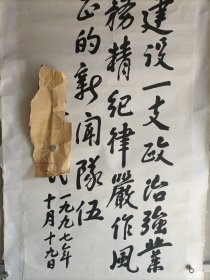 建设一支政治強業
務精紀律嚴作風
正的新闻隊伍
一九九七年
十月十九日